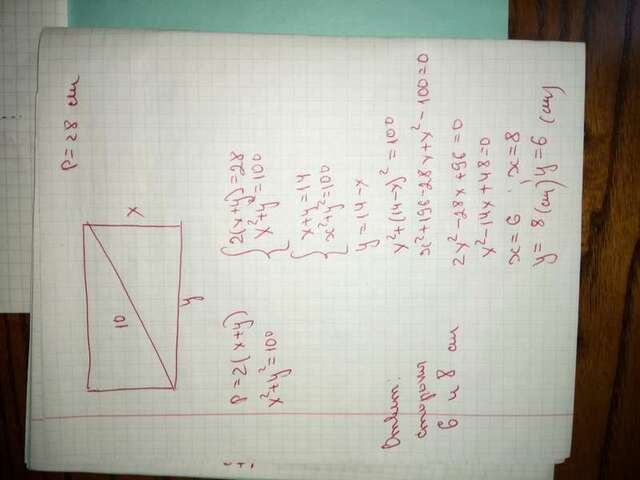 P=28 см
10
x
y
P=2(x+y)
x²+y²=100
2(x+y)=28
x²+y²=100
x+y=14
x²+y²=100
y=14-x
x²+(14-x)²=100
x²+196-28x+x²-100=0
2x²-28x+96=0
x²-14x+48=0
x=6; x=8
y=8(см) y=6 (см)
Ответ:
стороны
6 и 8 см